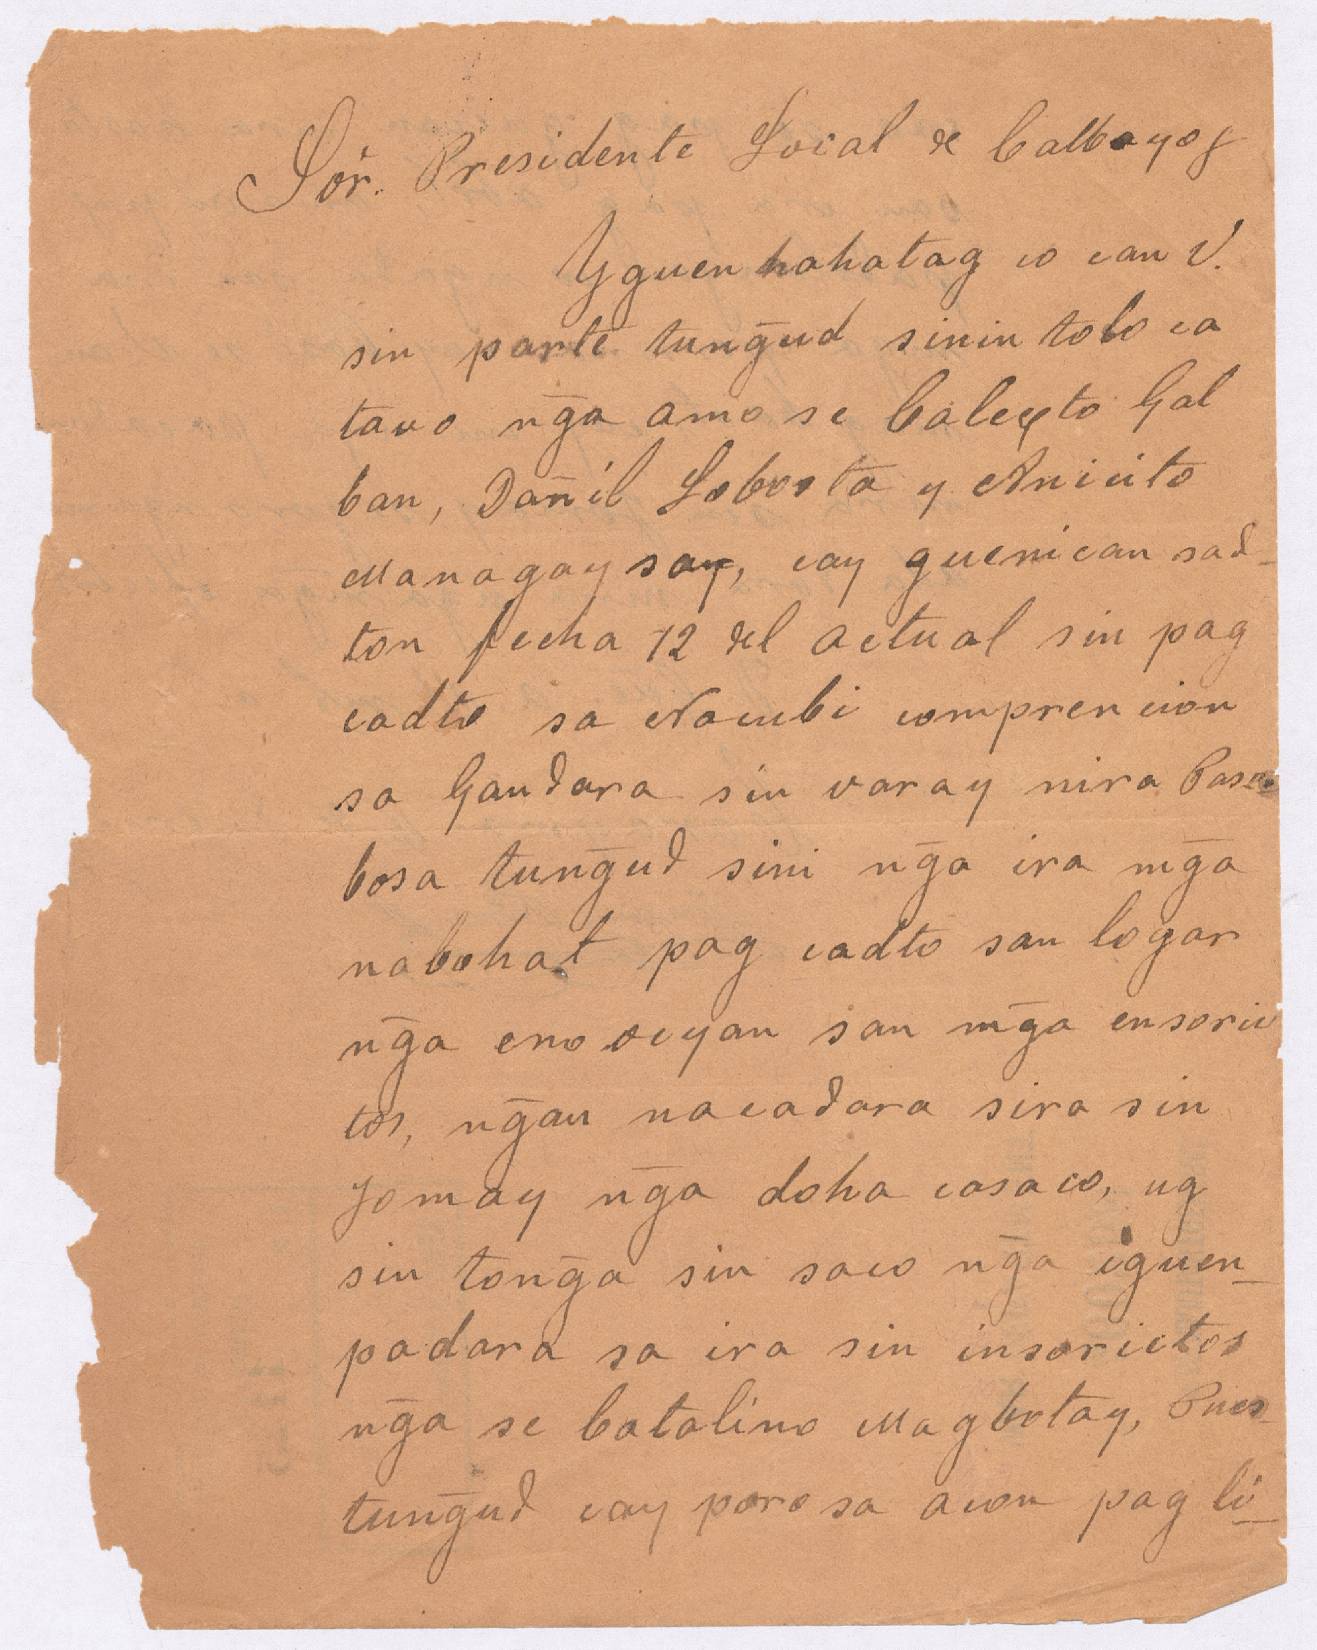 Sór. Presidente Local de Calbayog
Yguenhahatag co can V.
sin parte tung̃ud sinin tolo ca
tauo ng̃a amo se Calexto Gal
ban, Dañil Lobosta y Anicito
Managaysay, cay guenican sad-
ton fecha 12 del actual sin pag
cadto sa Nacubi comprencion
sa Gandara sin varay nira Pasa
bosa tung̃ud sini ng̃a ira mg̃a
nabohat pag cadto san logar
ng̃a eno ocyan san mg̃a ensoric
tos, ng̃an nacadara sira sin
homay ng̃a doha casaco, ug
sin tong̃a sin saco ng̃a iguen-
padara sa ira sin insorictos
ng̃a se Catalino Magbotay, Pues
tung̃ud cay poro sa acon pag li-